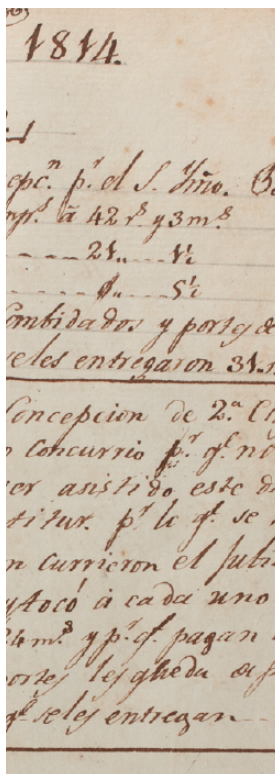 1814.
epc.ⁿ p.ʳ el S. Ymo.
à 42 r.ˢ y 3 m.ˢ
21,, 1½
5½
Combidados y portes de
se les entregaron 31.
Concepcion de 2.ª
concurrio p.ʳ q.ᵉ no
er asistido este
titur. p.ʳ lo q.ᵉ se
n currieron el
y tocó à cada uno
24 m.ˢ y p.ʳ q.ᵉ pagan
portes les queda
q.ᵉ se les entregan